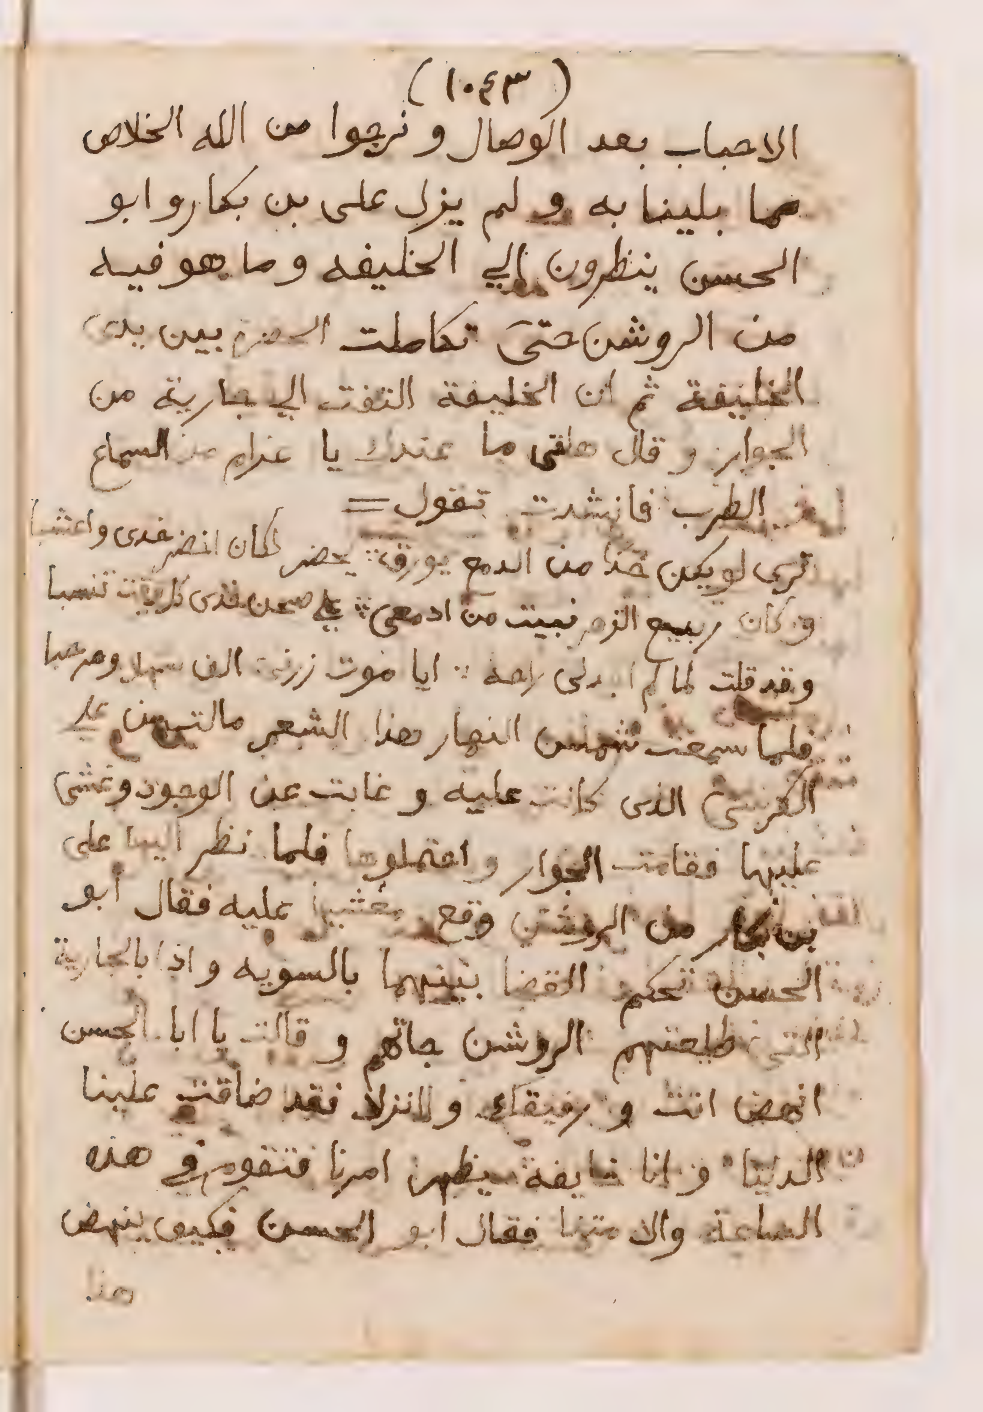 (١٠٤٣)
الاحباب بعد الوصال و نرجوا من الله الخلاص
مما بلينا به و لم يزل على بن بكار وابو
الحسن ينظرون الي الخليفه و ما هو فيه
من الروشن حتى تكاملت الحضرة بين يدى
الخليفة ثم ان الخليفة التفت الي جارية من
الجوار و قال هاتى ما عندك يا غرام من السماع
الطرب فانشدت تقول =
ترى لو يكن خدا من الدمع يورق يحضر لكان اخضر خدى واعشبا
و كان ربيع الزهر نبيت من ادمعى على صحن خدى كل
وقد قلت لما لم اجد لى راحه ايا موت زرنى الف سهلا ومرحبا
فلما سمعت شمس النهار هذا الشعر مالت من على
الكرسى الذى كانت عليه و غابت عن الوجود وغشى
عليها فقامت الجوار و احتملوها فلما نظر اليها على
بن بكار من الروشن وقع مغشيا عليه فقال ابو
الحسن تحكم القضا بينهما بالسويه و اذا بالجارية
التى طلعتهم الروشن جاتهم و قالت يا ابا الحسن
انهض انت و رفيقك و انزلا فقد ضاقت علينا
الدنيا و انا خايفة يظهر امرنا فتقوم في هذه
الساعة والا متنا فقال ابو الحسن فكيف ينهض
هذا